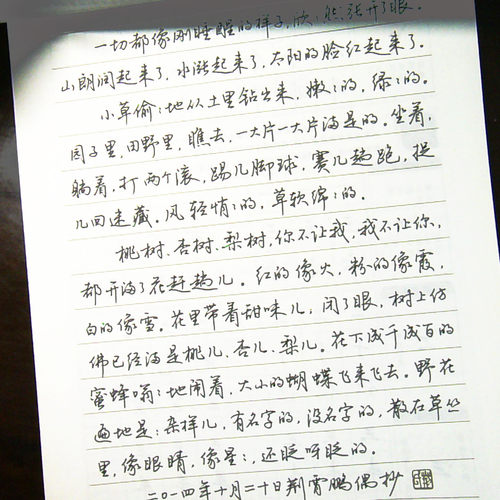 一切都像刚睡醒的样子,欣:然张开了眼.
山朗润起来了,水涨起来了,太阳的脸红起来了.
小草偷:地从土里钻出来,嫩:的,绿:的.
园子里,田野里,瞧去,一大片一大片满是的.坐着,
躺着,打两个滚,踢几脚球,赛几趟跑,捉
几回迷藏.风轻悄:的,草软绵:的.
桃树、杏树、梨树,你不让我,我不让你,
都开满了花赶趟儿.红的像火,粉的像霞,
白的像雪.花里带着甜味儿,闭了眼,树上仿
佛已经满是桃儿、杏儿、梨儿.花下成千成百的
蜜蜂嗡:地闹着,大小的蝴蝶飞来飞去.野花
遍地是:杂样儿,有名字的,没名字的,散在草丛
里,像眼睛,像星:,还眨呀眨的.
二〇一四年十月二十日荆霄鹏偶抄